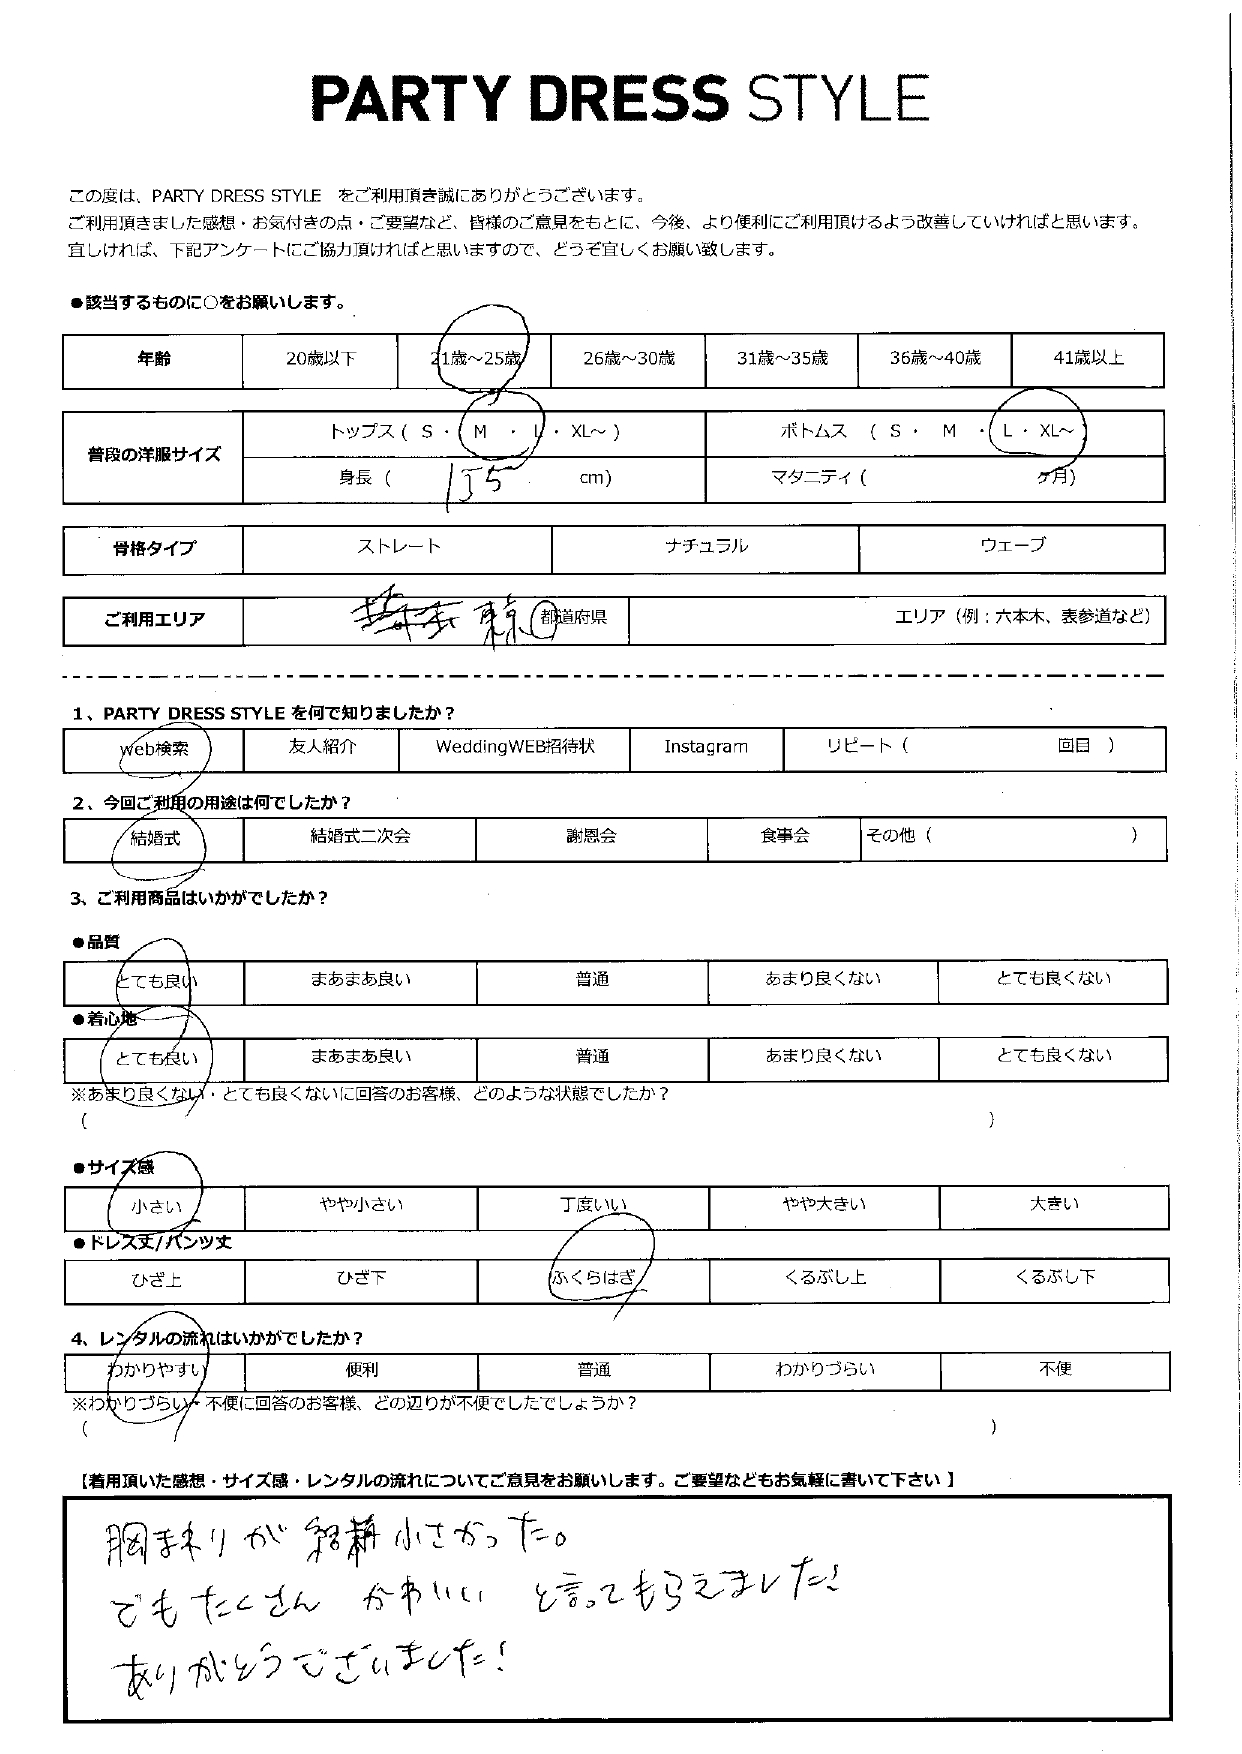 PARTY DRESS STYLE
この度は、PARTY DRESS STYLE をご利用頂き誠にありがとうございます。
ご利用頂きました感想・お気付きの点・ご要望など、皆様のご意見をもとに、今後、より便利にご利用頂けるよう改善していければと思います。
宜しければ、下記アンケートにご協力頂ければと思いますので、どうぞ宜しくお願い致します。
●該当するものに○をお願いします。
年齢 20歳以下 21歳～25歳 26歳～30歳 31歳～35歳 36歳～40歳 41歳以上
普段の洋服サイズ
トップス ( S ・ ( M ・ L ・ XL～ ) ボトムス ( S ・ M ・ L ・ XL～ )
身長 ( 155 cm) マタニティ ( ヶ月)
骨格タイプ ストレート ナチュラル ウェーブ
ご利用エリア 東京 都道府県 エリア（例：六本木、表参道など）
1、PARTY DRESS STYLE を何で知りましたか？
Web検索 友人紹介 WeddingWEB招待状 Instagram リピート ( 回目 )
2、今回ご利用の用途は何でしたか？
結婚式 結婚式二次会 謝恩会 食事会 その他 ( )
3、ご利用商品はいかがでしたか？
●品質
とても良い まあまあ良い 普通 あまり良くない とても良くない
●着心地
とても良い まあまあ良い 普通 あまり良くない とても良くない
※あまり良くない・とても良くないに回答のお客様、どのような状態でしたか？
( )
●サイズ感
小さい やや小さい 丁度いい やや大きい 大きい
●ドレス丈/パンツ丈
ひざ上 ひざ下 ふくらはぎ くるぶし上 くるぶし下
4、レンタルの流れはいかがでしたか？
わかりやすい 便利 普通 わかりづらい 不便
※わかりづらい・不便に回答のお客様、どの辺りが不便でしたでしょうか？
( )
【着用頂いた感想・サイズ感・レンタルの流れについてご意見をお願いします。ご要望などもお気軽に書いて下さい】
胸まわりが結構小さかった。
でもたくさん かわいい と言ってもらえました！
ありがとうございました！